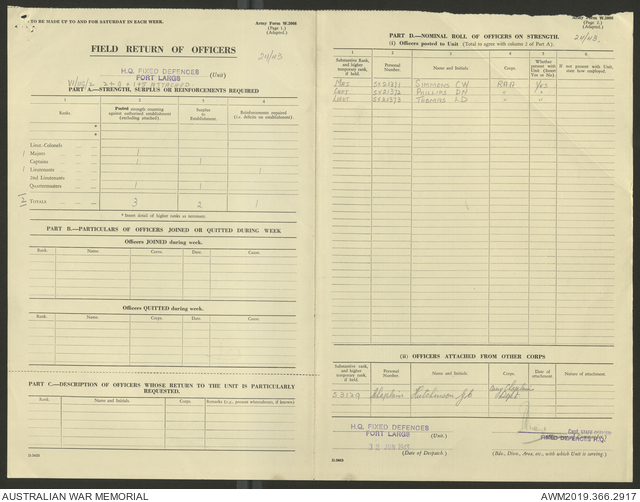 TO BE MADE UP TO AND FOR SATURDAY IN EACH WEEK.
Army Form W.3008
(Page 1.)
(Adapted.)
FIELD RETURN OF OFFICERS
24/43
H.Q. FIXED DEFENCES
FORT LARGS
(Unit)
PART A.—STRENGTH, SURPLUS OR REINFORCEMENTS REQUIRED
1 2 3 4
Ranks. Posted strength counting against authorised establishment (excluding attached). Surplus to Establishment. Reinforcements required (i.e. deficits on establishment).
*
*
Lieut.-Colonels
1 Majors 1
Captains 1 1
1 Lieutenants 1
2nd Lieutenants
Quartermasters 1 1
TOTALS 3 2 1
* Insert detail of higher ranks as necessary.
PART B.—PARTICULARS OF OFFICERS JOINED OR QUITTED DURING WEEK
Officers JOINED during week.
Rank. Name. Corps. Date. Cause.
Officers QUITTED during week.
Rank. Name. Corps. Date. Cause.
PART C.—DESCRIPTION OF OFFICERS WHOSE RETURN TO THE UNIT IS PARTICULARLY REQUESTED.
Rank. Name and Initials. Corps. Remarks (e.g., present whereabouts, if known).
Army Form W.3008
(Page 2.)
(Adapted.)
24/43.
PART D.—NOMINAL ROLL OF OFFICERS ON STRENGTH.
(i) Officers posted to Unit (Total to agree with column 2 of Part A).
1 2 3 4 5 6
Substantive Rank, and higher temporary rank, if held. Personal Number. Name and Initials. Corps. Whether present with Unit (Insert Yes or No). If not present with Unit, state how employed.
SX21371 SIMMONS CW RAA YES
CAPT SX21372 PHILLIPS DN " "
LIEUT SX21373 THOMAS LD " "
(ii) OFFICERS ATTACHED FROM OTHER CORPS
Substantive rank, and higher temporary rank, if held. Personal Number. Name and Initials. Corps. Date of attachment. Nature of attachment.
Chaplain Hutchinson
H.Q. FIXED DEFENCES
FORT LARGS
(Unit.)
JUN 1943
(Date of Despatch.)
Capt.
FIXED DEFENCES H.Q.
(Bde., Divn., Area, etc., with which Unit is serving.)
AUSTRALIAN WAR MEMORIAL
AWM2019.366.2917